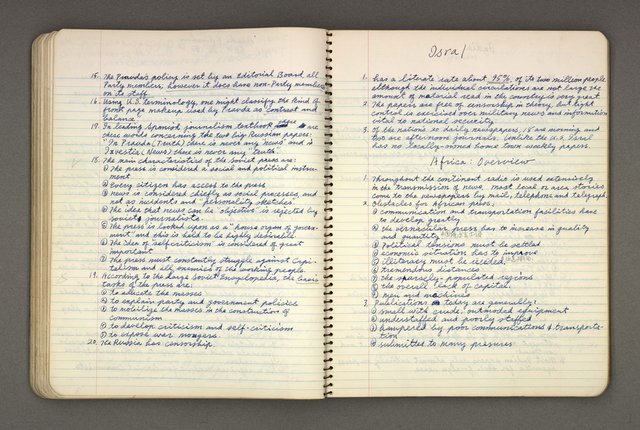 15. The Pravda's policy is set by an Editorial Board all
Party members; however it does have non-Party members
on its staff.
16. Using U.S. terminology, one might classify the kind of
front page makeup used by Pravda as contrast and
balance
17. In leading Spanish journalism textbook there are
these words concerning the two big Russian papers:
"In Pravda (Truth) there is never any news and in
Investia (News) there is never any truth."
18. The main characteristics of the soviet press are:
① The press is considered a social and political instru-
ment
② every citizen has access to the press
③ news is considered chiefly as social processes, and
not as incidents and "personality sketches"
④ The idea that news can be "objective" is rejected by
soviet journalists
⑤ The press is looked upon as a "house organ of govern-
ment" and this is held to be highly desirable
⑥ The idea of self-criticism is considered of great
important
⑦ The press must constantly struggle against Capi-
talism and all enemies of the working people.
19. According to the Large Soviet Encyclopedia, the basic
tasks of the press are:
① to educate the masses
② to explain party and government policies
③ to mobilize the masses in the construction of
communism
④ to develop criticism and self-criticism
⑤ to expose war mongers.
20. The Russia has censorship.
Isral
1. has a literate rate about 95% of its two million people
although the individual circulations are not large the
amount of material read in the country is very great
2. The papers are free of censorship in theory, but tight
control is exercised over military news and information
vital to national security
3. Of the nations 20 daily newspapers, 15 are morning and
but are afternoon journals. Unlike the U.S. Isral
has no locally-owned home town weekly papers.
Africa: Overview
1. Throughout the continent radio is used extensively
in the transmission of news, most local or area stories
come to the newspapers by mail, telephone and telegraph.
2. Obstacles for African press
① communication and transportation facilities have
to develop greatly
② the vernacular press has to increase in quality
and quantity
③ Political tensions must be settled
④ economic situation has to improve
⑤ illiteracy must be erected
⑥ tremendous distances
⑦ the sparsely-populated regions
⑧ the overall lack of capital.
⑨ men and machines
3. Publications today are generally:
① small with crude, outmoded equipment
② understaffed and poorly staffed
③ hampered by poor communications & transporta-
tion
④ submitted to many presures